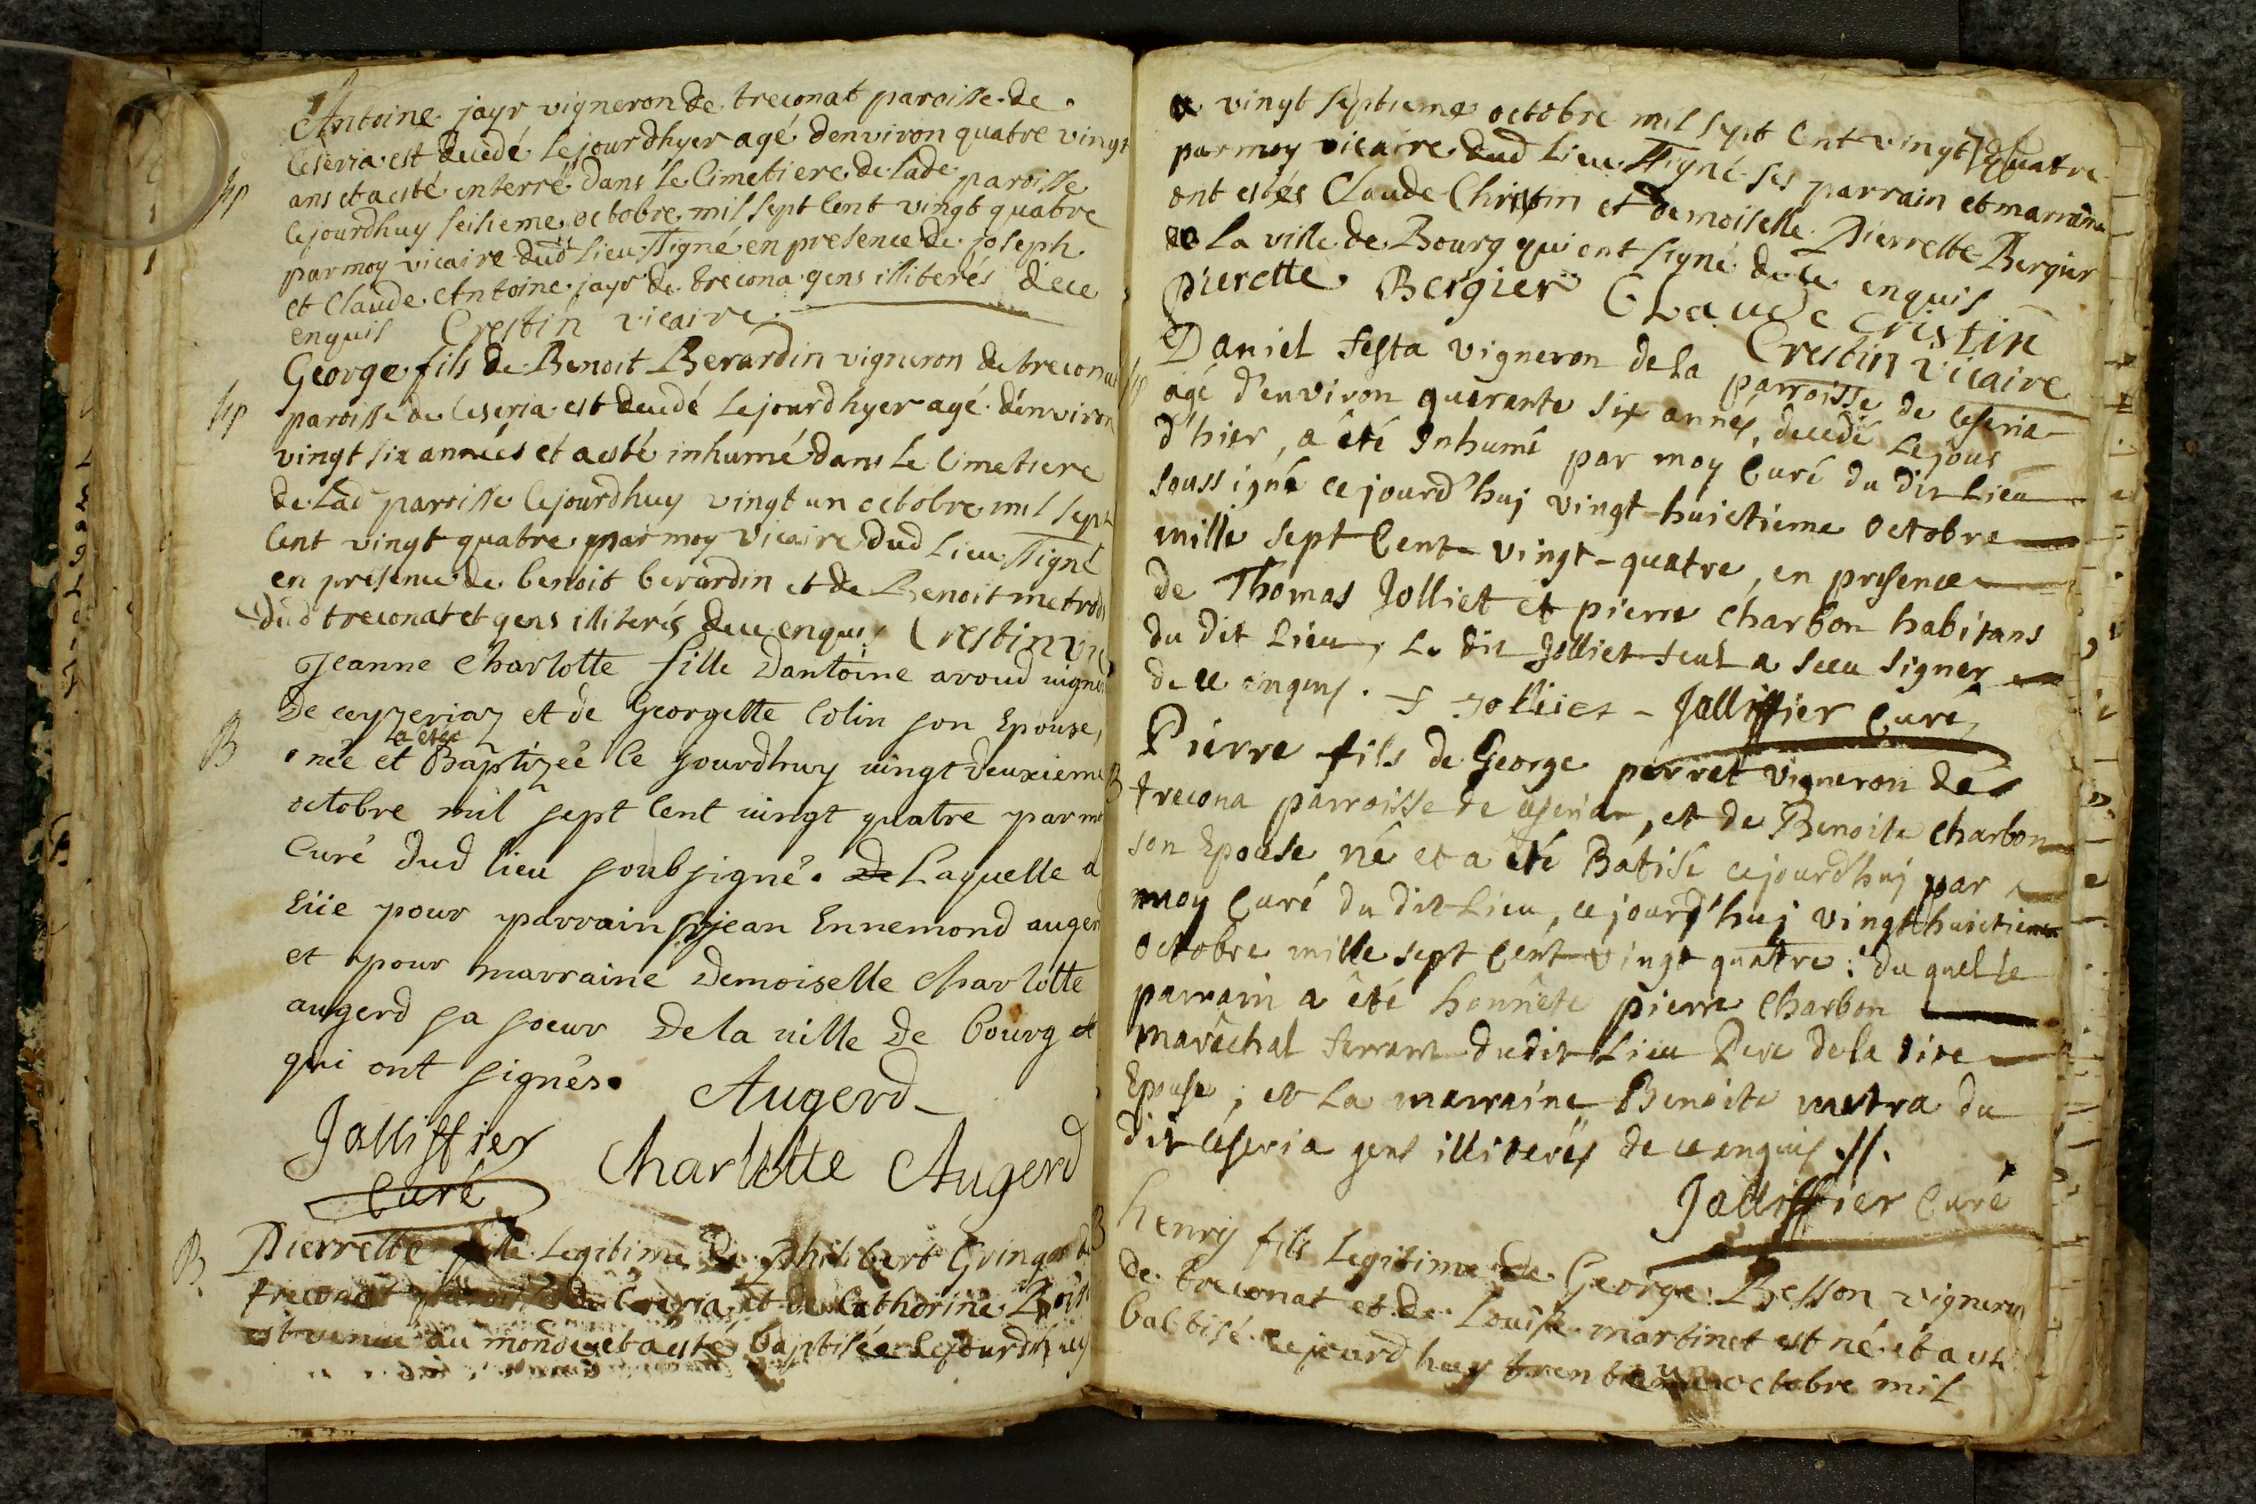 Antoine jayr vigneron de treconat paroisse de
Ceseria est decedé le jour dhyer agé denviron quatre vingt
Sep
ans et a esté enterré dans le Cimetiere de lade paroisse
cejourdhuy seisieme octobre mil sept cent vingt quatre
par moy vicaire dud Lieu ssigné en presence de joseph
et Claude Antoine jayr de trecona gens illiterés dece
enquis Crestin vicaire
George fils de Benoit Berardin vigneron de treconat
Sep
paroisse de Ceseria est decedé le jour dhyer agé d'environ
vingt six années et a esté inhumé dans le Cimetiere
de Lad paroisse cejourdhuy vingt un octobre mil sept
cent vingt quatre par moy vicaire dud Lieu ssigné
en presence de benoit berardin et de Benoit metrod
dud treconat et gens illiterés dece enquis Crestin vic
Jeanne charlotte fille Dantoine aroud vigne
De ceyzeriaz et de Georgette Colin son Epouse,
a etée
B
née et Baptizeé ce jourdhuy vingt deuxieme
octobre mil sept cent vingt quatre par m
Curé dud lieu soubsigné. De Laquelle a
eüe pour parrain sr jean Ennemond auger
et pour marraine Demoiselle Charlotte
augerd sa soeur De la ville De bourg et
qui ont signés.
Augerd
Jalliffier
Curé
Charlotte Augerd
B
Pierrette fille Legitime de philibert Gringoz de
treconat paroisse de Ceseria et de Catherine
est venue au monde et a esté baptisée Cejourdhuy
ce vingt septieme octobre mil sept cent vingt quatre
par moy vicaire dud Lieu ssigné ses parrain et marraine
ont estés Claude Christin et demoiselle Pierrette Bergier
de la ville de Bourg qui ont signé de ce enquis
Pierette Bergier CLaude Cristin
Crestin vicaire
Sep
Daniel festa vigneron de la parroisse de Ceseria
agé d'environ quarante six années, decedé Le jour
d'hier, a été Inhumé par moy Curé du dit Lieu
soussigné ce jourd'huj vingt-huictieme Octobre
mille sept Cent vingt-quatre, en presence
de Thomas Jolliet et pierre charbon habitans
du dit Lieu, Le dit Jolliet seul a sceu signer
de ce enquis. T Jolliet - Jalliffier Curé
B
Pierre fils de George perret vigneron de
trecona parroisse de Ceseria, et de Benoite charbon
son Epouse né et a été Batisé cejourd'huj par
moy Curé du dit Lieu, ce jourd'huj vingt huictieme
Octobre mille sept Cent vingt quatre: du quel le
parrain a été honnête pierre Charbon
maréchal ferrant dudit Lieu Pere de la dite
Epouse; et La marraine Benoite metra du
dit Céseria gens illiterés de ce enquis.//.
Jalliffier Curé
B
henry fils legitime de George Besson vigneron
de treconat et de Louise martinet est né et a esté
babtisé cejourdhuy trente un octobre mil